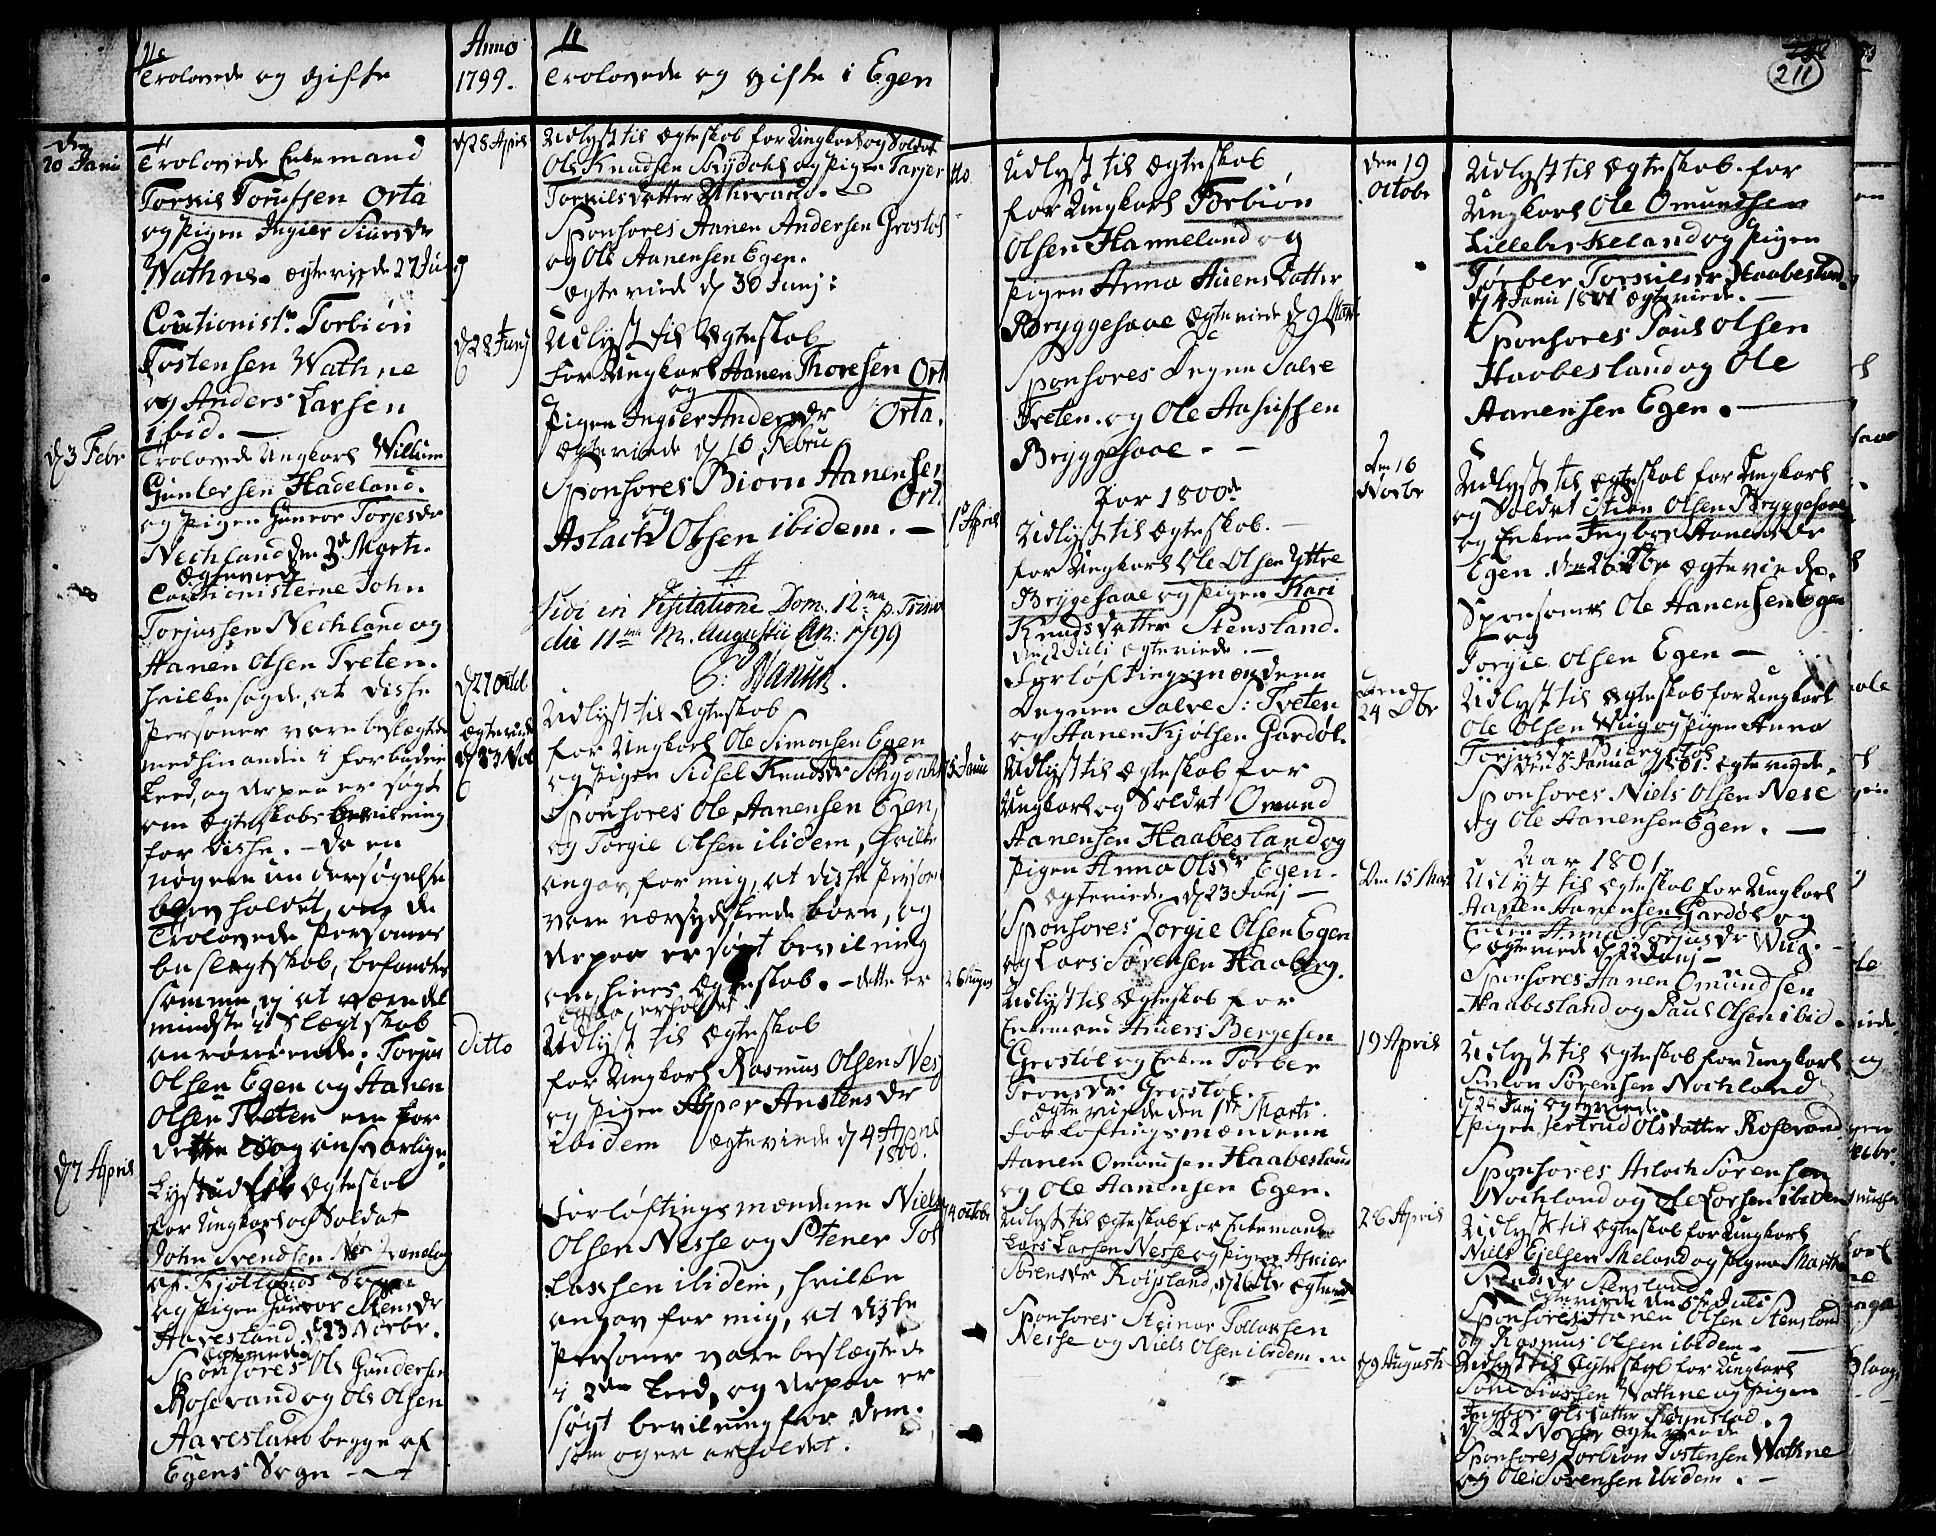 Trolovede og Gifte
Anno
1799.
Trolovede og Gifte i Egen
211
den
20 Janu
Trolovede Enkemand
Torkil Torkilsen Orta
og Pigen Ingier Siursdr
Wathne. Ægteviede 27 Junj
Coutionistr Torbiön
Tostensen Wathne
og Anders Larsen
ibid.
d 3 Febr
Trolovede Ungkarl Willum
Guntersen Hadeland.
og Pigen Gunvor Torjesdr
Nechland den 3d Marti.
Ægteviede
Coutionisterne John
Torjussen Nechland og
Aanen Olsen Tveten.
hvilke sagde, at disse
Personer vare beslægtede
med hinanden i forbuden
Leed, og derpaa er søgt
om Ægteskabs bevilning
for disse. - Da en
nøgere undersøgelse
blev holdet, om de
Trolovede Personers
beslegtskab, befandtes
samme, ej at være det
mindste i Slægtskab
anrørende; Torjus
Olsen Egen og Aanen
Olsen Tveten ere for
dette Sag ansvarlige.
d 7 April
Lyst til Ægteskab
for Ungkarl og Soldat
John Svendsen
af Fjotlands Sogn
og Pigen Gunvor Stensdr
Aavesland d 23 Novbr.
Ægteviede
Sponsores Ole Gundersen
Rosevand og Ole Olsen
Aavesland begge af
Egens Sogn
d 28 April
Udlyst til Ægteskab for Ungkarl og Soldat
Ole Knudsen Schydahl og Pigen Tarjer
Torkilsdatter
Sponsores Aanen Andersen Grostøl
og Ole Aanensen Egen.
Ægteviede d 30 Junj:
d 28 Junj
Udlyst til Ægteskab
for Ungkarl Aanen Thoresen Ort
og
Pigen Ingier Andersdr Orta.
Ægteviede d 16 Febru
Sponsores Biörn Aanensen
Ort.
og
Aslach Olsen ibidem. -
Vidi in Visitatione Dom. 12ma p. Trinit
die 11ma M. Augustii An: 1799
P: Hansen.
d 27 Octbr
Ægteviede
d 23 Nob
Udlyst til Ægteskab
for Ungkarl Ole Simonsen Egen
og Pigen Sidsel Knudsdr Schydahl
Sponsores Ole Aanensen Egen,
og Torgie Olsen ibidem, hvilke
angav for mig, at disse Personer
vare nærsydskende børn, og
derpaa er søgt bevilning
om hines Ægteskab. - dette er
erholdet
Ditto
Udlyst til Ægteskab
for Ungkarl Rasmus Olsen Nes
og Pigen Asper Anstensdr
ibidem Ægteviede d 4 April
1800.
Forløftingsmændene Niels
Olsen Nesse og Stener Tol
lassen ibidem, hvilke
angav for mig, at disse
Personer vare beslægtede
i 2den Leed, og derpaa er
søgt bevilning for dem.
som og er erholdet.
Udlyst til Ægteskab
for Ungkarl Torbiön
Olsen Hanneland og
Pigen Anna Auensdatter
Bryggesaae Ægteviede d 9
Sponsores Degnen Salve
Tveten. og Ole Aasulfsen
Bryggesaae. -
Aar 1800
1 April
Udlyst til Ægteskab. -
for Ungkarl Ole Olsen Yttre
Brygesaae og Pigen Kari
Knudsdatter Stensland.
den 2 Juli Ægteviede. -
Forløftingsmændene
Degnen Salve S: Tveten
og Aanen Kjølsen Gardøl.
Udlyst til Ægteskab for
Ungkarl og Soldat Omund
Aanensen Haabesland og
Pigen Anna Olsdr Egen.
Ægteviede d 23 Junj -
Sponsores Torgie Olsen Egen
og Lars Sørensen Haaberg.
Udlyst til Ægteskab for
Enkemand Anders Bergesen
Grostøl og Enken Torber
Tronsdr Grostøl.
Ægteviede den 1ste Marti.
Forløftingsmændene
Aanen Omundsen Haabesland
og Ole Aanensen Egen.
4 Octobr
Udlyst til Ægteskab for Enkemand
Lars Larsen Nesse og Pigen
Sørensdr Roijsland, Ægteviede
Sponsores Steinar Tollassen
Nesse og Niels Olsen ibidem.
den 19
Octobr
Udlyst til Ægteskab for
Ungkarl Ole Omundsen
Lillebirkeland og Pigen
Tørber Torkilsdr Haabesland
d 4 Janu 1801 Ægteviede. -
Sponsores Poul Olsen
Haabesland og Ole
Aanensen Egen. -
den 16
Novbr
Udlyst til Ægteskab for Ungkarl
og Soldat Stian Olsen Bryggesaae
og Enken Ingbor Aanensdr
Egen den 26 Dbr Ægteviede.
Sponsores Ole Aanensen Egen
og
Torgie Olsen Egen -
den
24 Dbr
Udlyst til Ægteskab for Ungkarl
Ole Olsen Wiig og Pigen Anna
Torjusdr
den 8 Janua 1801. Ægteviede.
Sponsores Niels Olsen Nese
og Ole Aanensen Egen. -
Aar 1801
den 15 Mar
Udlyst til Ægteskab for Ungkarl
Aanen Aanensen Gardøl og
Enken Anna Torjusdr Wiig.
Ægteviede d 22 Junj -
Sponsores Aanen Omundsen
Haabesland og Paul Olsen ibid
19 April
Udlyst til Ægteskab for Ungkarl
Simon Sørensen Nochland
d 24 Junj Ægteviede
Pigen Jertrud Olsdatter Rosevand
Sponsores Aslach Sørensen
Nochland og Ole Larsen ibidem
26 April
Udlyst til Ægteskab for Ungkarl
Niels Ejelsen Meland og Pigen Martha
Svendsdr Stensland
Ægteviede den 5te Juli
Sponsores Aanen Olsen Stensland
og Rasmus Olsen ibidem. -
d 9 Augusti
Udlyst til Ægteskab for Ungkarl
Wathne og Pigen
Ingbor Olsdatter
d 22 Novbr Ægteviede
Sponsores Torbiön Tostensen Wathne
og Ole Sørensen ibidem. -